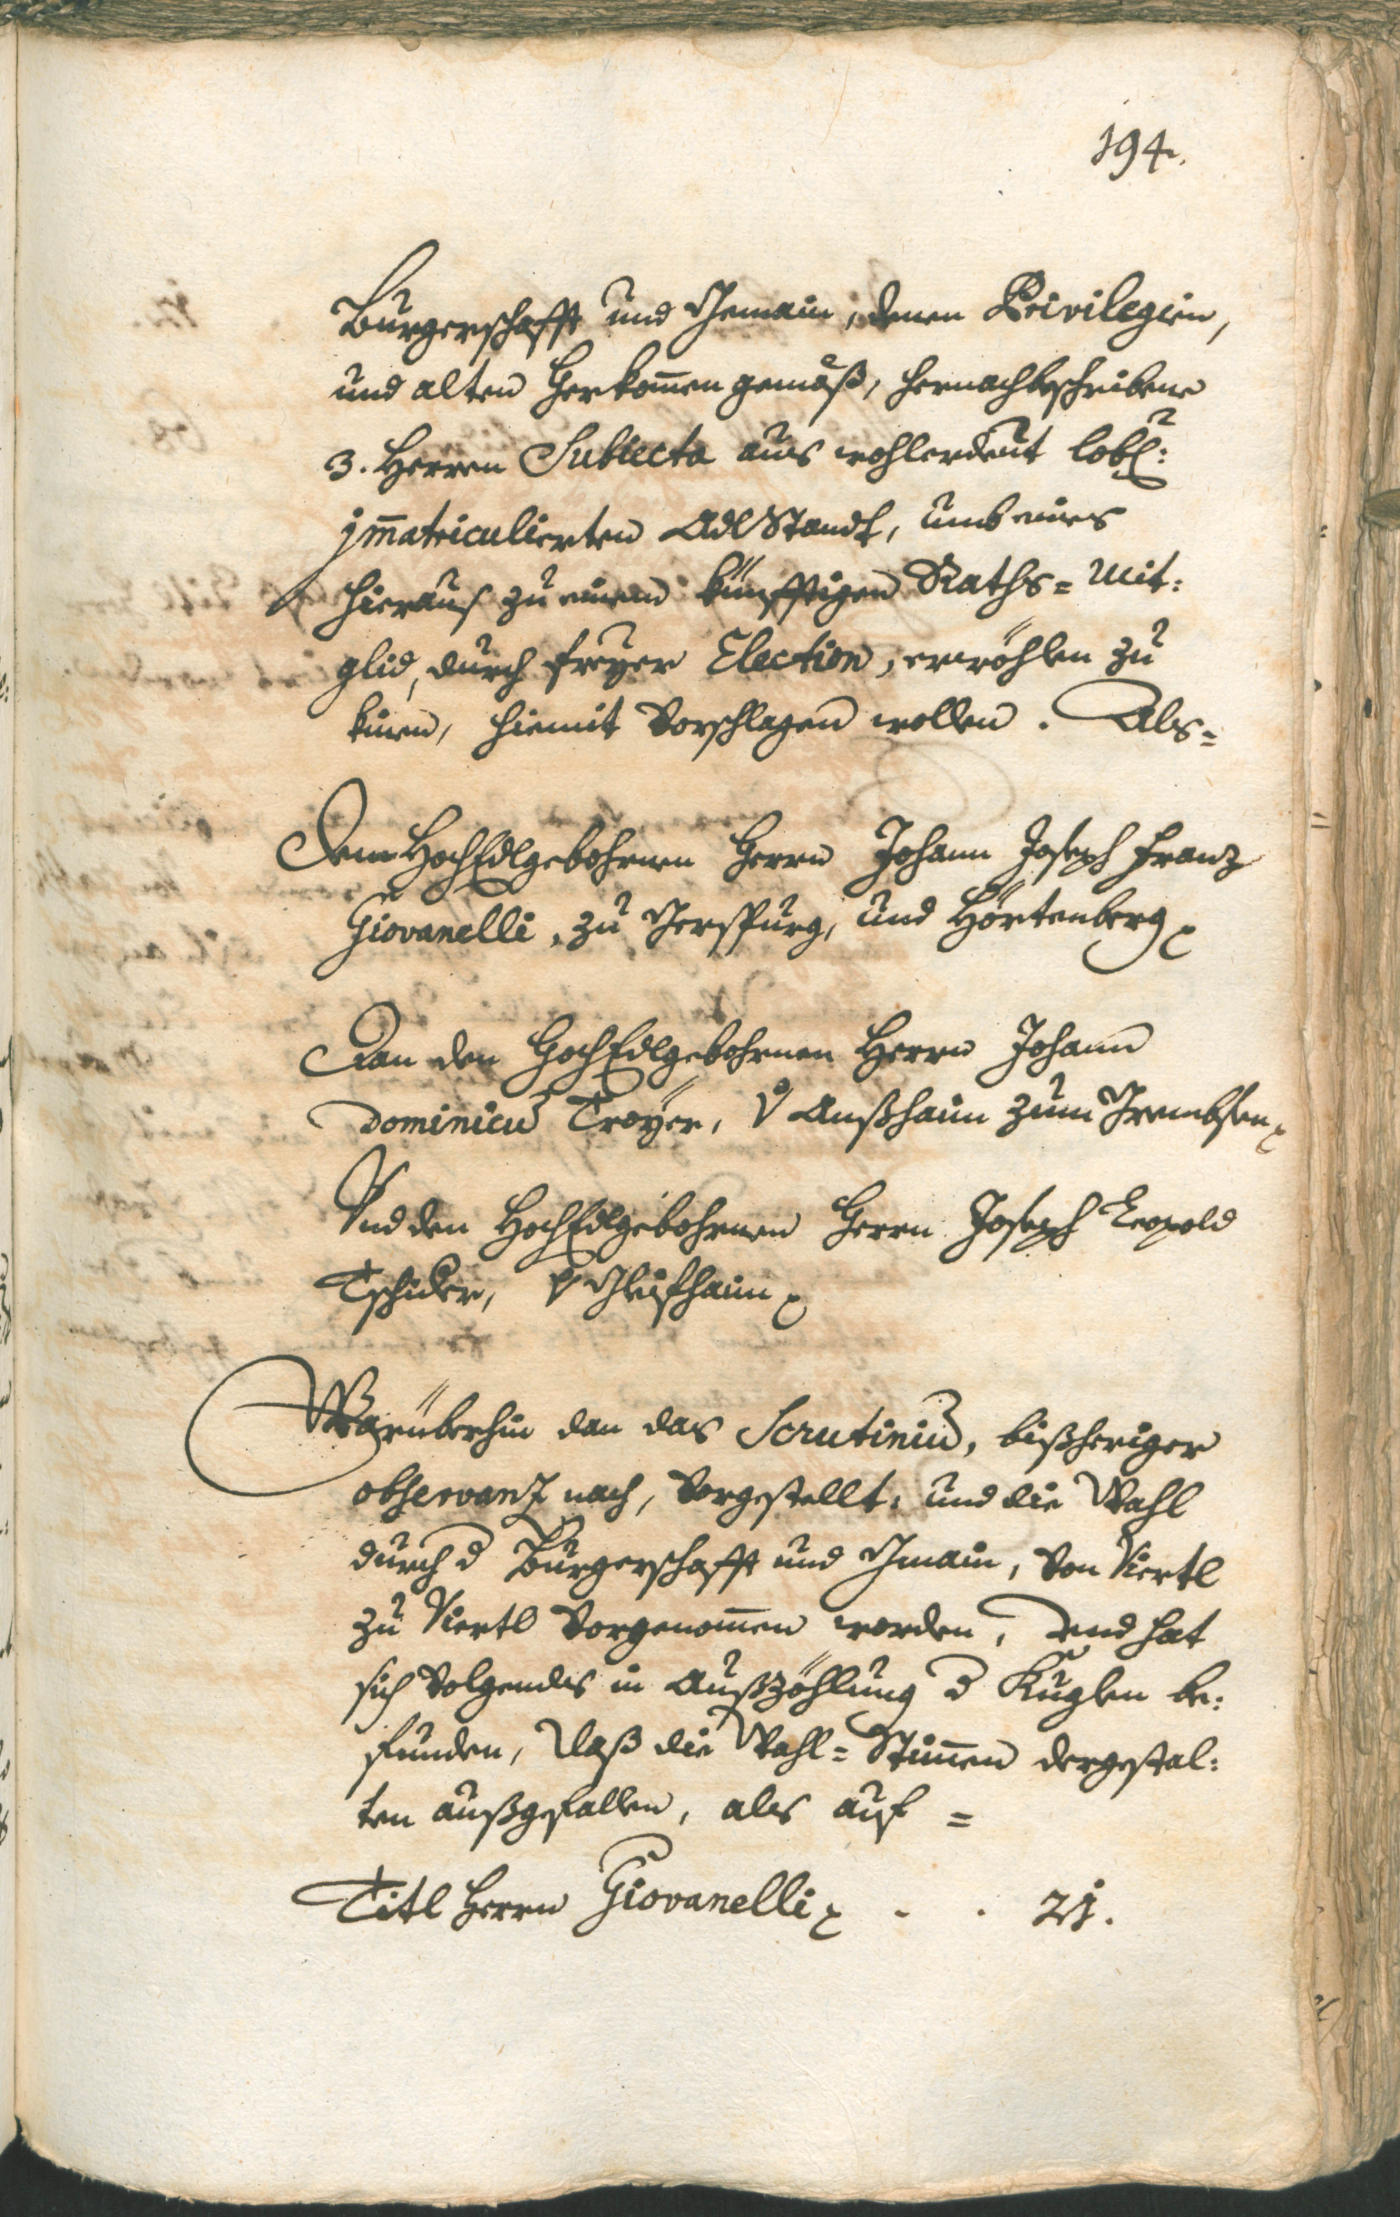 194.
Burgerschafft und Gemain, denen Privilegien,
und alten Herkom̄en gemäß, hernachbeschribene
3. Herren Subiecta aus wohlerdeut lobl:
jm̄atriculierten Adl Standt, umb eines
hieraus zu einem künfftigen Raths= Mit:
glid, durch freyer Election, erwöhlen zu
kinen, hiemit Vorschlagen wollen. Als=
Den HochEdlgebohrnen Herrn Johann Joseph Franz
Giovanelli, zu Gerspurg, und Hörtenberg
Dan den HochEdlgebohrnen Herrn Johann
Dominicu Troyer, V Außhaim zum
Und den HochEdlgebohrnen Herrn Joseph Leopold
Tschider, V Gleifhaim
Warüberhin dan das Scrutiniu, bißheriger
observanz nach, Vorgestellt, und die Wahl
durch d Burgerschafft und Gmain, Von Viertl
zu Viertl Vorgenom̄en worden, Und hat
sich Volgendes in Außzöhlung d Kuglen be:
funden, daß die Wahl= Stim̄en dergestal:
ten außgefallen, als auf =
Titl Herrn Giovanelli - . 21.